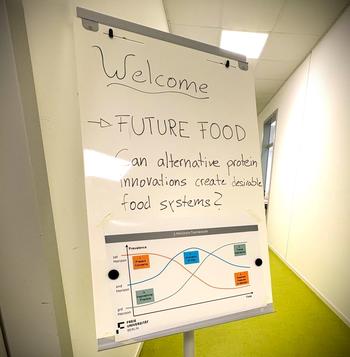 Welcome
→ FUTURE FOOD
Can alternative protein
innovations create desirable
food systems?
Prevalence
1st
Horizon
2nd
Horizon
3rd
Horizon
Time
FREIE
UNIVERSITÄT
BERLIN